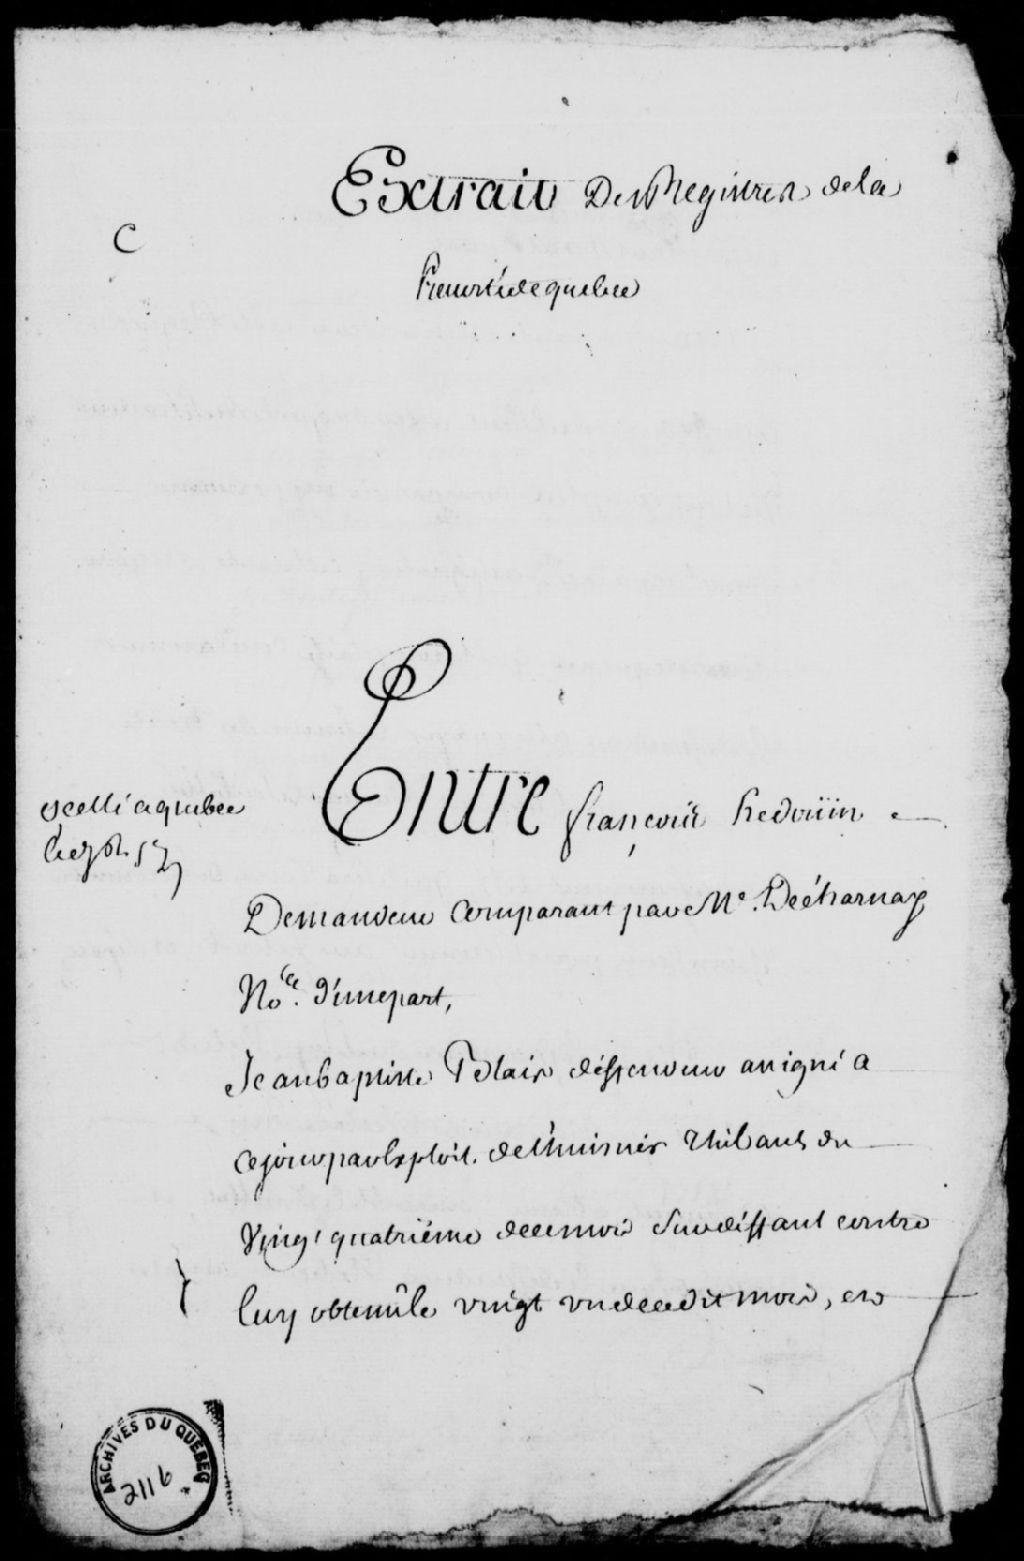 Extrait Des Registres de la
C
Prevosté de quebec
Entre françois hedoüin
scellé a quebec
Demandeur Comparant par Me. Décharnay
No.re d'une part,
Jean baptiste Blais déffendeur assigné a
ce jour par Exploit de l'huissier thibault du
Vingt quatriéme de ce mois Sur déffaut contre
luy obtenu le vingt un de ce dit mois, et
ARCHIVES DU QUÉBEC
2116